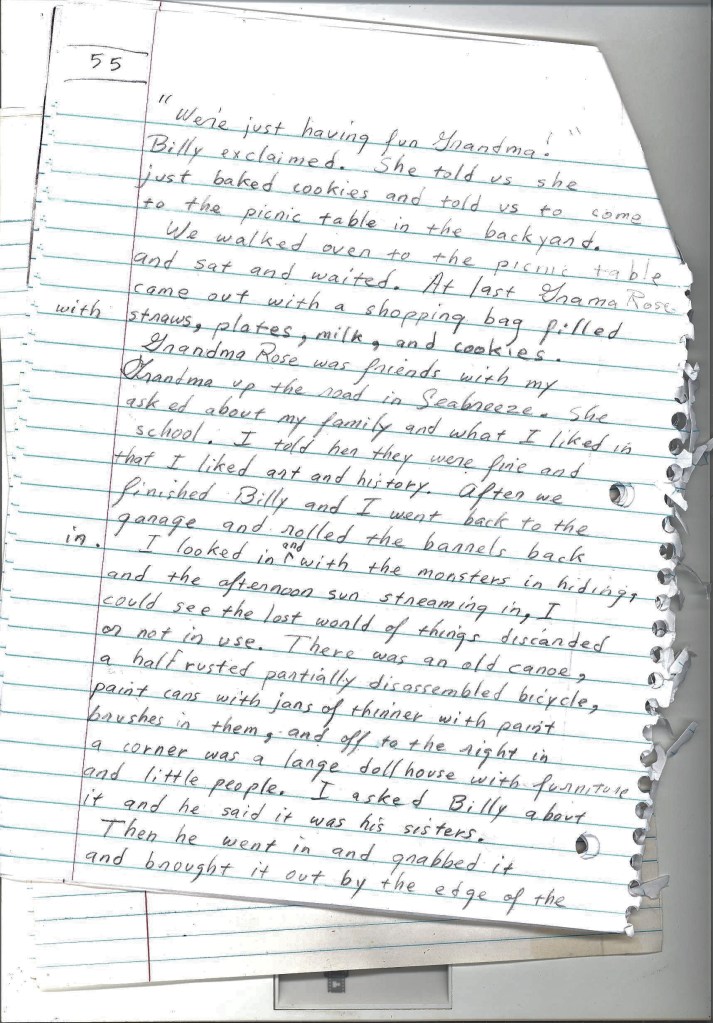 55
"We're just having fun Grandma!"
Billy exclaimed. She told us she
just baked cookies and told us to come
to the picnic table in the backyard.
We walked over to the picnic table
and sat and waited. At last Grama Rose
came out with a shopping bag filled
with straws, plates, milk, and cookies.
Grandma Rose was friends with my
Grandma up the road in Seabreeze. She
asked about my family and what I liked in
school. I told her they were fine and
that I liked art and history. After we
finished Billy and I went back to the
garage and rolled the barrels back
in. I looked in and with the monsters in hidings,
and the afternoon sun streaming in, I
could see the lost world of things discarded
or not in use. There was an old canoe,
a half rusted partially disassembled bicycle,
paint cans with jars of thinner with paint
brushes in them, and off to the right in
a corner was a large dollhouse with furniture
and little people. I asked Billy about
it and he said it was his sisters.
Then he went in and grabbed it
and brought it out by the edge of the